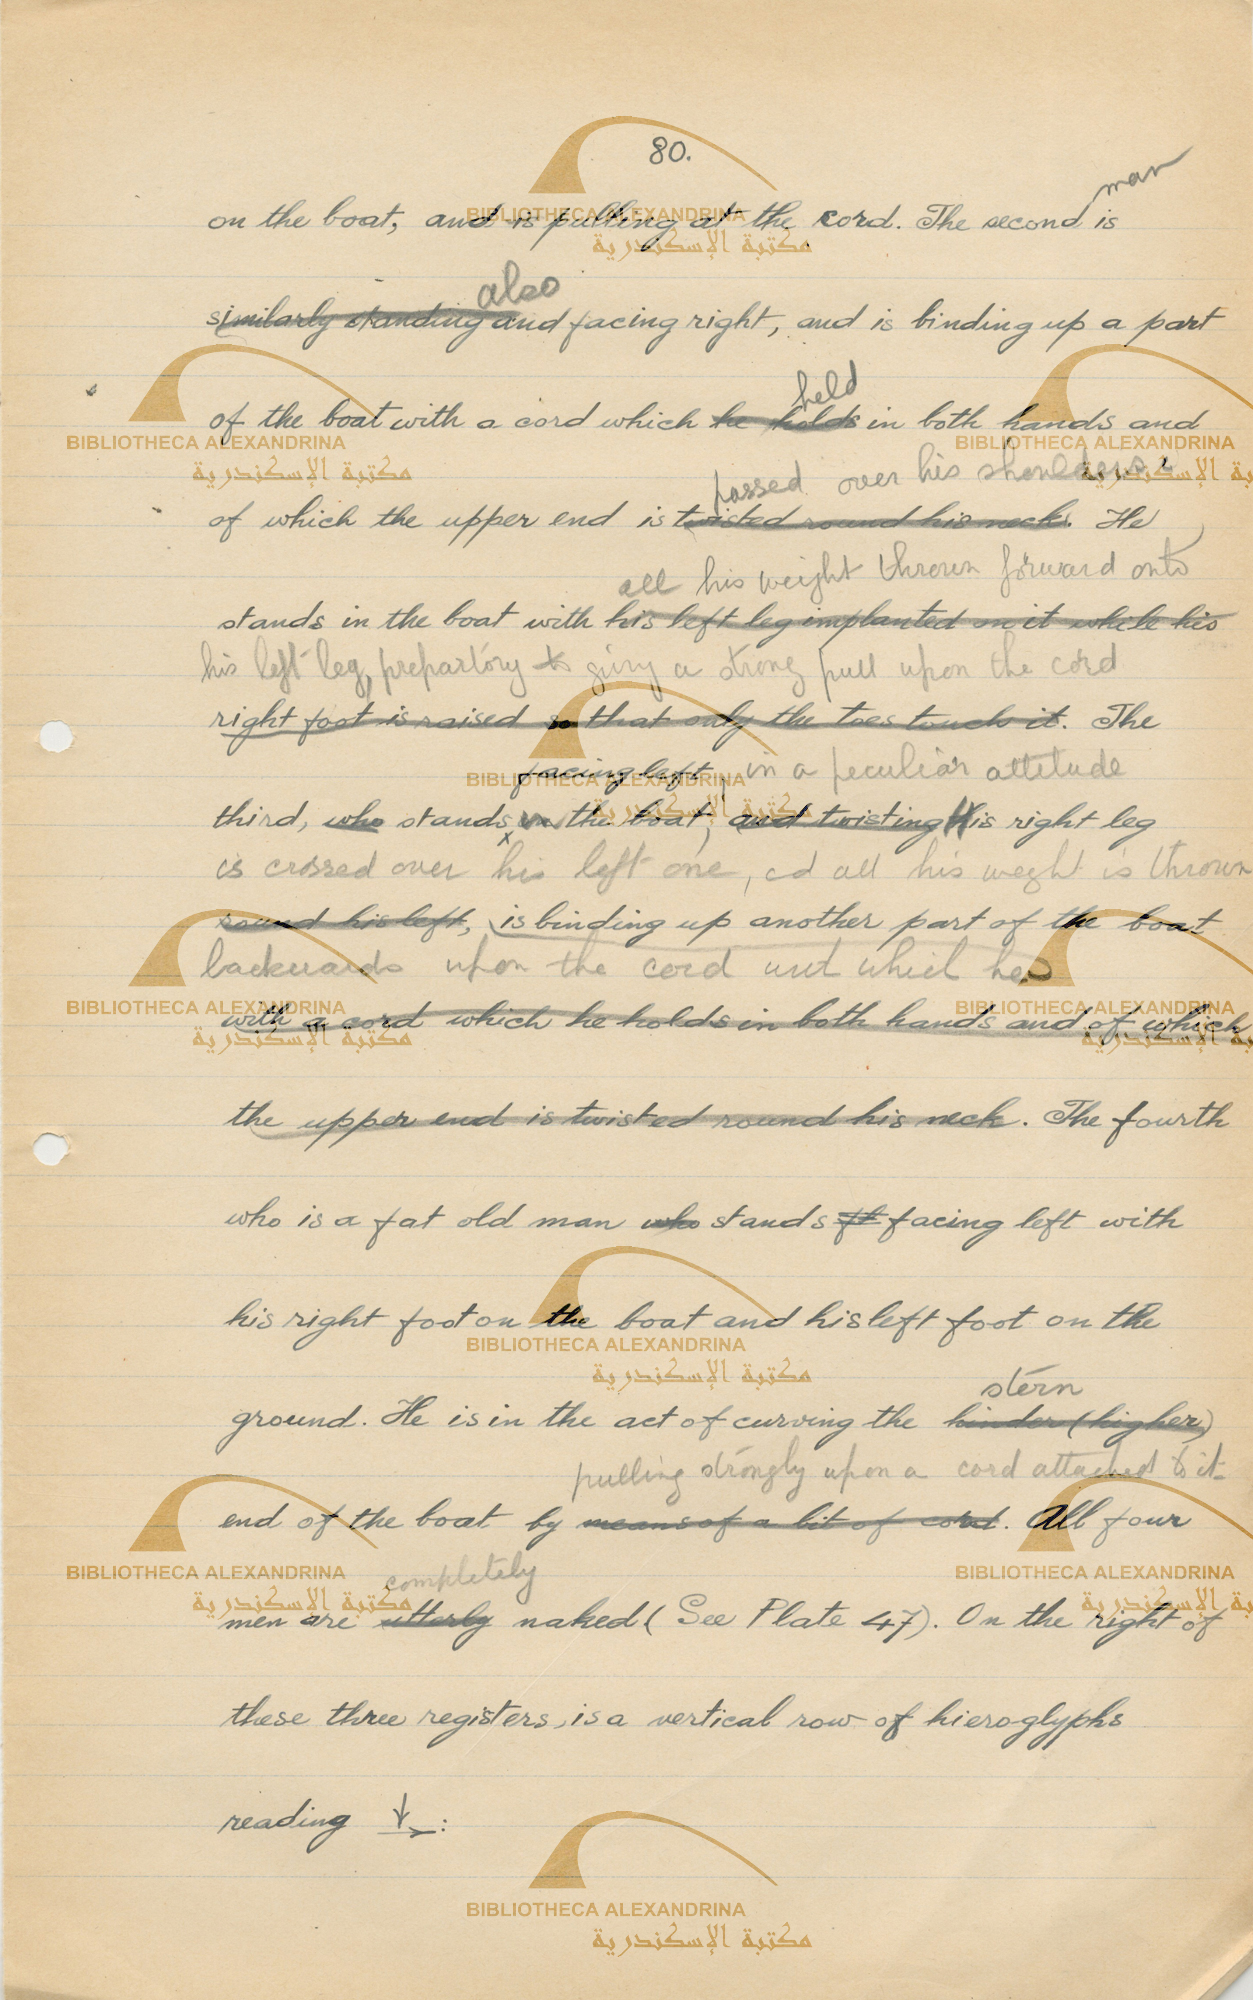 80.
man
on the boat, and is pulling at the cord. The second is
also
similarly standing and facing right, and is binding up a part
held
of the boat with a cord which he holds in both hands and
passed over his shoulders
of which the upper end is twisted round his neck. He
all his weight thrown forward onto
stands in the boat with his left leg implanted on it while his
his left leg, prepartory to giving a strong pull upon the cord
right foot is raised so that only the toes touch it. The
facing left, in a peculiar attitude
third, who stands in the boat, and twisting His right leg
is crossed over his left one, ad all his weight is thrown
round his left, is binding up another part of the boat
backwards upon the cord which he
with a cord which he holds in both hands and of which
the upper end is twisted round his neck. The fourth
who is a fat old man who stands ft facing left with
his right foot on the boat and his left foot on the
stern
ground. He is in the act of curving the hinder (higher)
pulling strongly upon a cord attached to it
end of the boat by means of a bit of cord. All four
completely
men are utterly naked (See Plate 47). On the right of
these three registers, is a vertical row of hieroglyphs
reading ↓→:
BIBLIOTHECA ALEXANDRINA
مكتبة الإسكندرية